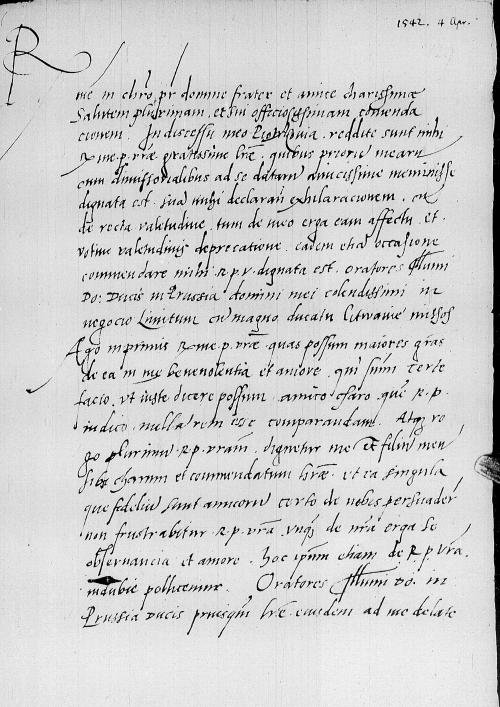 1542. 4 Apr.
R
me in chro pr domine frater et amice charissime
Salutem plurimam et sui officiosissimam comenda
cionem. In discessu meo reddite sunt mihi
R me p. vrae gratiosime lrae, quibus priorum mearum
cum dimissorialibus ad se datarum amicissime meminisse
dignata est. sua mihi declarari exhilaracionem, cum
de recta valetudine, tum de meo erga eam affectu, et
votiue valetudinis deprecatione. eadem etiam occasione
commendare mihi R.p.v. dignata est. oratores Illumi
Do: Ducis in Prussia domini mei colendissimi in
negocio Limitum cum magno ducatu Litwanie missos
Ago inprimis R me p. vrae quas possum maiores gras
de ea in me beneuolentia et amore, qui sum certe
facio, vt iuste dicere possum amico charo, quem R.p.
iudico, nullam rem esse comparandam. Atq ro
go plurimum R.p. vram, dignetur me et filium meum
sibi charum et commendatum habere. et ea singula
que fidelium sunt amicorum certo de nobis persuaderi
non frustrabitur R.p. vra vnq de nra erga se
obseruancia et amore. hoc ipsum etiam de R.p. vra
indubie pollicemur. Oratores Illumi Do. in
Prussia Ducis priusq lrae eiusdem ad me delate